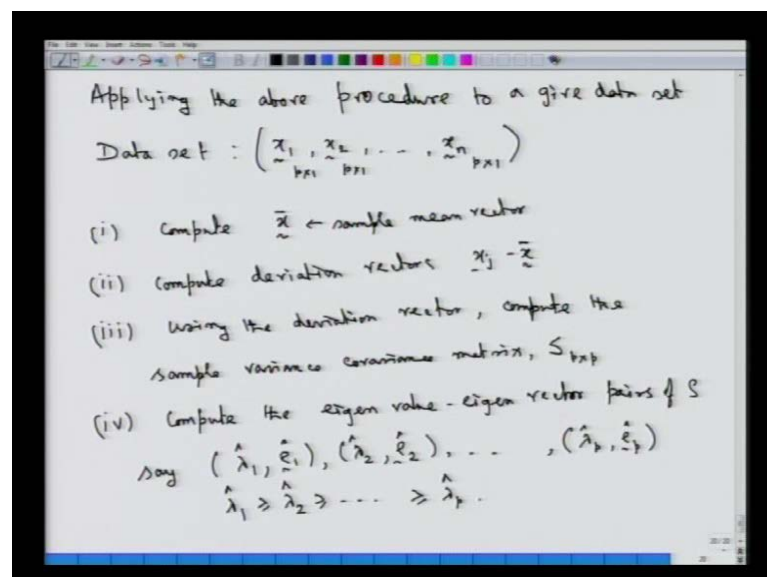 File Edit View Insert Actions Tools Help
Applying the above procedure to a give data set
Data set : (x̰₁ p×1 , x̰₂ p×1 , . . . , x̰ₙ p×1)
(i) Compute x̰̄ ← sample mean vector
(ii) Compute deviation vectors x̰ⱼ - x̰̄
(iii) Using the deviation vector, compute the
sample variance covariance matrix, S p×p
(iv) Compute the eigen value - eigen vector pairs of S
say (λ̂₁, ḛ̂₁), (λ̂₂, ḛ̂₂), . . . , (λ̂ₚ, ḛ̂ₚ)
λ̂₁ ≥ λ̂₂ ≥ - - - ≥ λ̂ₚ .